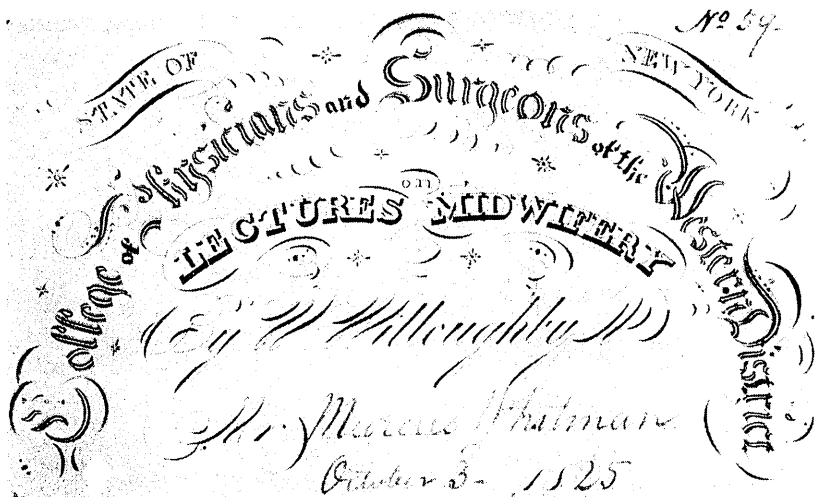 No 59
STATE OF NEW YORK
College of Physicians and Surgeons of the Western District
LECTURES on MIDWIFERY
By W Willoughby M
Mr. Marcus Whitman
October 3 - 1825